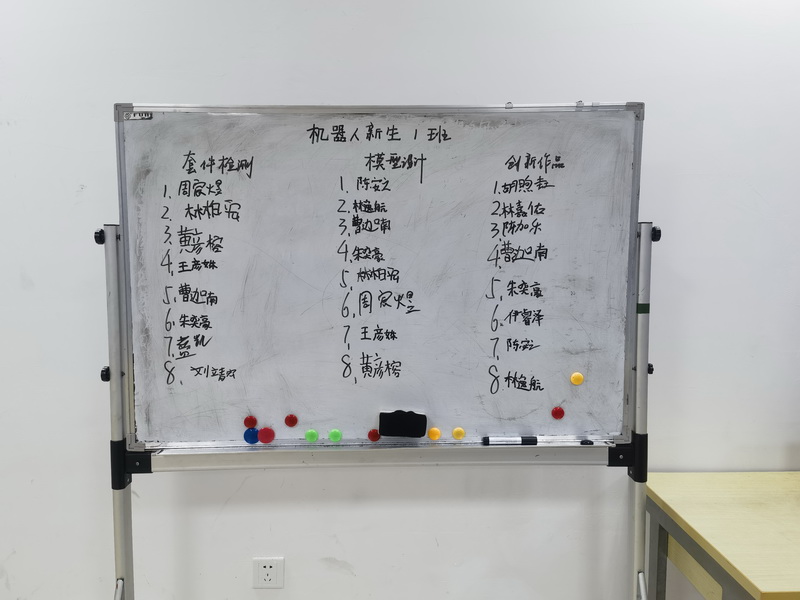 机器人新生1班
套件检测
1. 周家煜
2. 林柏
3. 黄彦榕
4. 王彦姝
5. 曹迦南
6. 朱奕豪
7. 蓝凯
8. 刘
模型设计
1. 陈安之
2. 林逸航
3. 曹迦南
4. 朱奕豪
5. 林柏
6. 周家煜
7. 王彦姝
8. 黄彦榕
创新作品
1. 胡煦
2. 林嘉佑
3. 陈加乐
4. 曹迦南
5. 朱奕豪
6. 伊睿泽
7. 陈安之
8. 林逸航